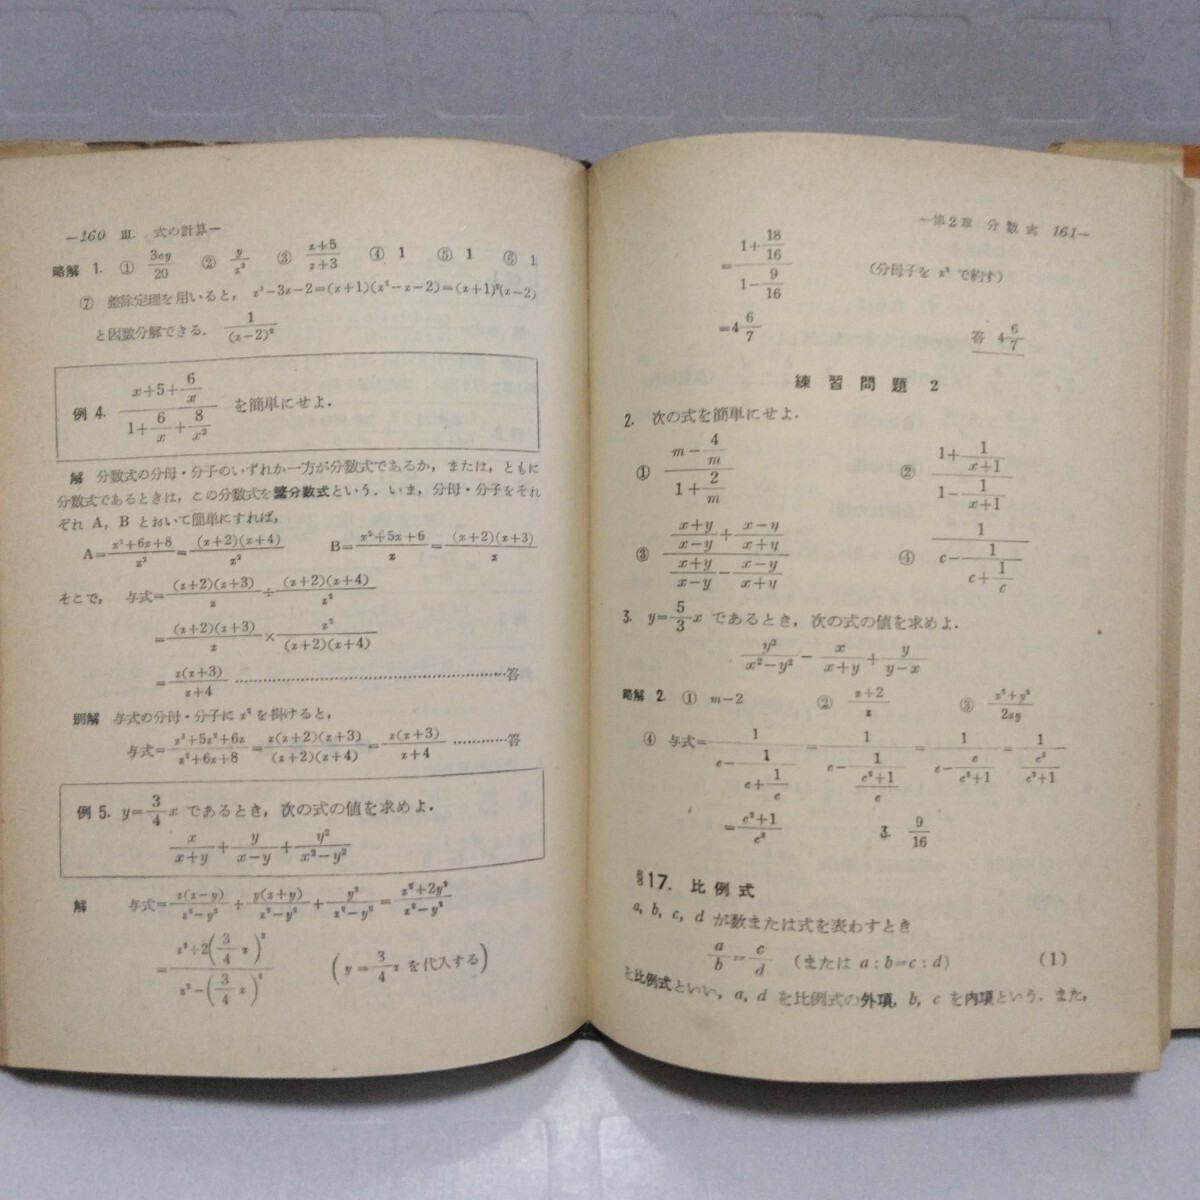 —160 Ⅲ. 式の計算—
略解 1. ① 3xy/20 ② y/x² ③ (x+5)/(x+3) ④ 1 ⑤ 1 ⑥ 1
⑦ 整除定理を用いると, x³−3x−2=(x+1)(x²−x−2)=(x+1)²(x−2)
と因数分解できる. 1/(x−2)²
例 4. (x+5+6/x)/(1+6/x+8/x²) を簡単にせよ.
解 分数式の分母・分子のいずれか一方が分数式であるか, または, ともに
分数式であるときは, この分数式を繁分数式という. いま, 分母・分子をそれ
ぞれ A, B とおいて簡単にすれば,
A=(x²+6x+8)/x²=(x+2)(x+4)/x² B=(x²+5x+6)/x=(x+2)(x+3)/x
そこで, 与式=(x+2)(x+3)/x÷(x+2)(x+4)/x²
=(x+2)(x+3)/x×x²/(x+2)(x+4)
=x(x+3)/(x+4) ……………………答
別解 与式の分母・分子に x² を掛けると,
与式=(x³+5x²+6x)/(x²+6x+8)=x(x+2)(x+3)/(x+2)(x+4)=x(x+3)/(x+4) …………答
例 5. y=3/4 x であるとき, 次の式の値を求めよ.
x/(x+y)+y/(x−y)+y²/(x²−y²)
解 与式=x(x−y)/(x²−y²)+y(x+y)/(x²−y²)+y²/(x²−y²)=(x²+2y²)/(x²−y²)
=(x²+2(3/4 x)²)/(x²−(3/4 x)²) (y=3/4 x を代入する)
—第2章 分数式 161—
=(1+18/16)/(1−9/16) (分母子を x² で約す)
=4 6/7 答 4 6/7
練習問題 2
2. 次の式を簡単にせよ.
① (m−4/m)/(1+2/m) ② (1+1/(x+1))/(1−1/(x+1))
③ ((x+y)/(x−y)+(x−y)/(x+y))/((x+y)/(x−y)−(x−y)/(x+y)) ④ 1/(c−1/(c+1/c))
3. y=5/3 x であるとき, 次の式の値を求めよ.
y²/(x²−y²)−x/(x+y)+y/(y−x)
略解 2. ① m−2 ② (x+2)/x ③ (x²+y²)/2xy
④ 与式=1/(c−1/(c+1/c))=1/(c−1/((c²+1)/c))=1/(c−c/(c²+1))=1/(c³/(c²+1))
=(c²+1)/c³ 3. 9/16
§17. 比例式
a, b, c, d が数または式を表わすとき
a/b=c/d (または a:b=c:d) (1)
を比例式といい, a, d を比例式の外項, b, c を内項という. また,